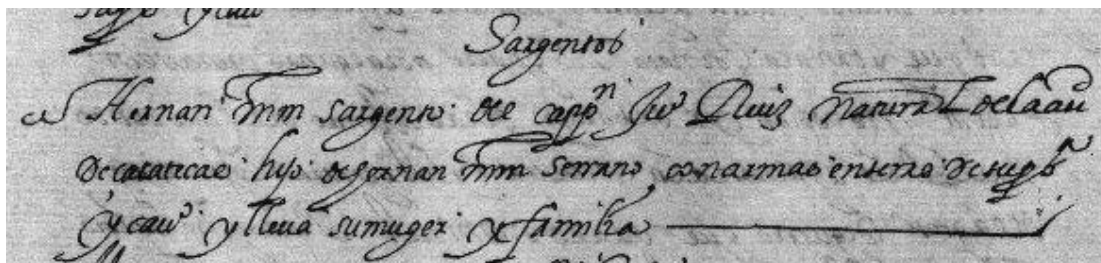 Sargentos
Hernan mrn sargento de cappn Juo Ruiz natural de la ciu
de cacatecas hijo de fernan mrn serrano con armas enteras de su psa
y cauo y lleua su muger y familia